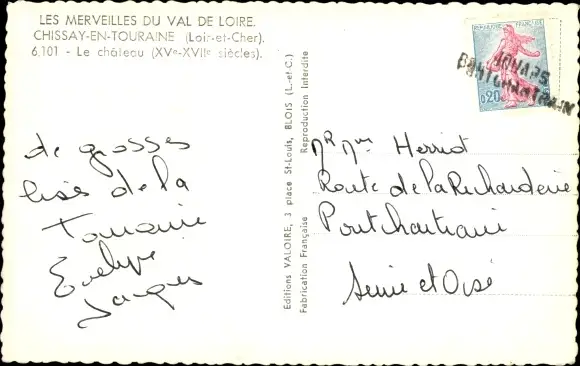 LES MERVEILLES DU VAL DE LOIRE.
CHISSAY-EN-TOURAINE (Loir-et-Cher).
6.101 - Le château (XVe-XVIIe siècles).
de grosses
bises de la
Touraine
Evelyne
Jacques
Editions VALOIRE, 3 place St-Louis, BLOIS (L.-et-C.)
Fabrication Française Reproduction Interdite
0,20
JOUARS
PONTCHARTRAIN
Mr Mme Herriot
Route de la Richarderie
Pontchartrain
Seine et Oise